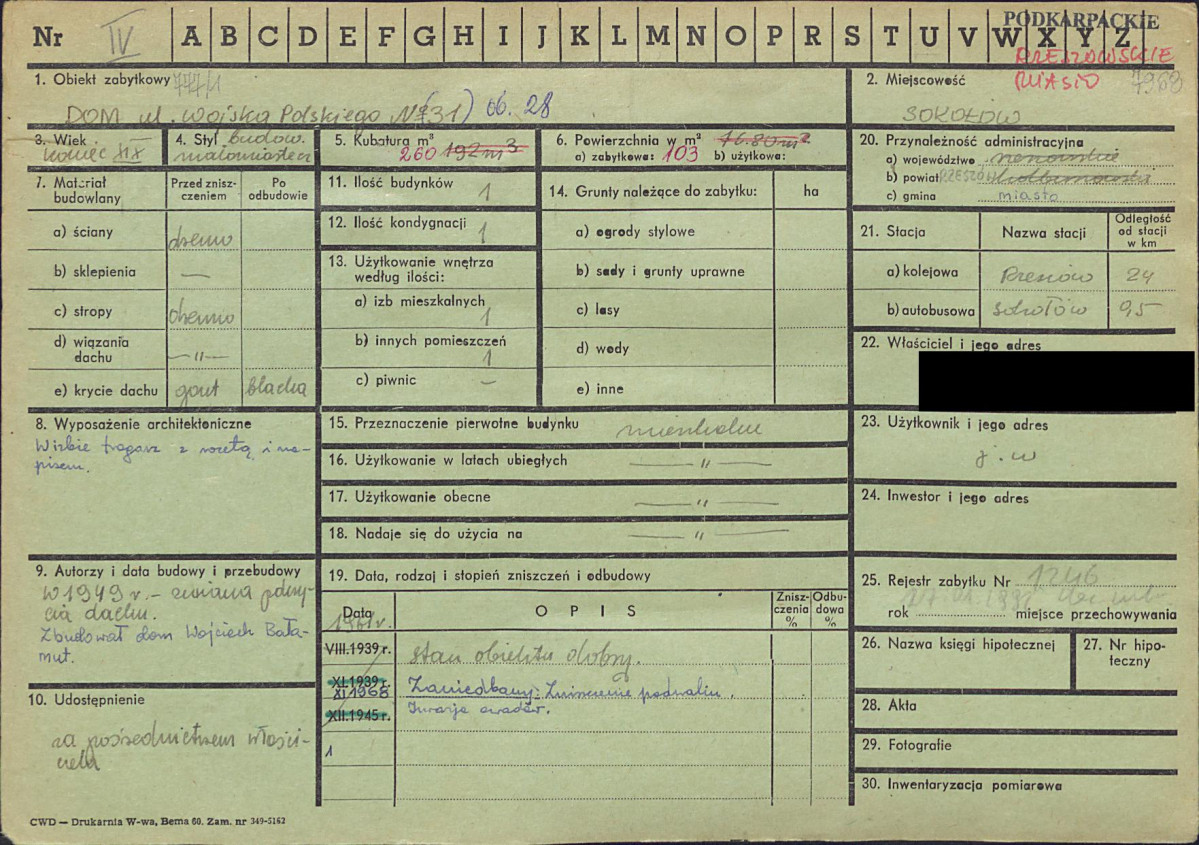 Nr IV A B C D E F G H I J K L M N O P R S T U V W X Y Z
PODKARPACKIE
RZESZOWSKIE
MIASTO
1. Obiekt zabytkowy 777/1
DOM ul. Wojska Polskiego Nr (31) ob. 28
2. Miejscowość 7969
SOKOŁÓW
3. Wiek
koniec XIX
4. Styl budow.
małomiastecz
5. Kubatura m³
260 192 m³
6. Powierzchnia w m² 16.80 m²
a) zabytkowa: 103 b) użytkowa:
20. Przynależność administracyjna
a) województwo rzeszowskie
b) powiat RZESZÓW kolbuszowski
c) gmina miasto
7. Materiał budowlany
Przed zniszczeniem
Po odbudowie
a) ściany drewno
b) sklepienia —
c) stropy drewno
d) wiązania dachu —„—
e) krycie dachu gont blacha
11. Ilość budynków 1
12. Ilość kondygnacji 1
13. Użytkowanie wnętrza
według ilości:
a) izb mieszkalnych
1
b) innych pomieszczeń
1
c) piwnic —
14. Grunty należące do zabytku: ha
a) ogrody stylowe
b) sady i grunty uprawne
c) lasy
d) wody
e) inne
21. Stacja
Nazwa stacji
Odległość
od stacji
w km
a) kolejowa Rzeszów 24
b) autobusowa Sokołów 0,5
22. Właściciel i jego adres
8. Wyposażenie architektoniczne
W izbie tragarz z rozetą i na-
pisem.
15. Przeznaczenie pierwotne budynku mieszkalne
16. Użytkowanie w latach ubiegłych —„—
17. Użytkowanie obecne —„—
18. Nadaje się do użycia na —„—
23. Użytkownik i jego adres
j. w
24. Inwestor i jego adres
9. Autorzy i data budowy i przebudowy
W 1949 r. – zmiana pokry-
cia dachu.
Zbudował dom Wojciech Bała-
mut.
19. Data, rodzaj i stopień zniszczeń i odbudowy
Data
O P I S
Znisz-
czenia
%
Odbu-
dowa
%
1961 r.
VIII.1939 r. Stan obiektu dobry.
XI.1939 r.
XI 1968 Zaniedbany. Zniszczenie podwalin.
XII.1945 r. Inwazja owadów.
1
25. Rejestr zabytku Nr 1246
rok miejsce przechowywania
26. Nazwa księgi hipotecznej
27. Nr hipo-
teczny
10. Udostępnienie
za pośrednictwem właści-
ciela
28. Akta
29. Fotografie
30. Inwentaryzacja pomiarowa
CWD — Drukarnia W-wa, Bema 60. Zam. nr 349-5162